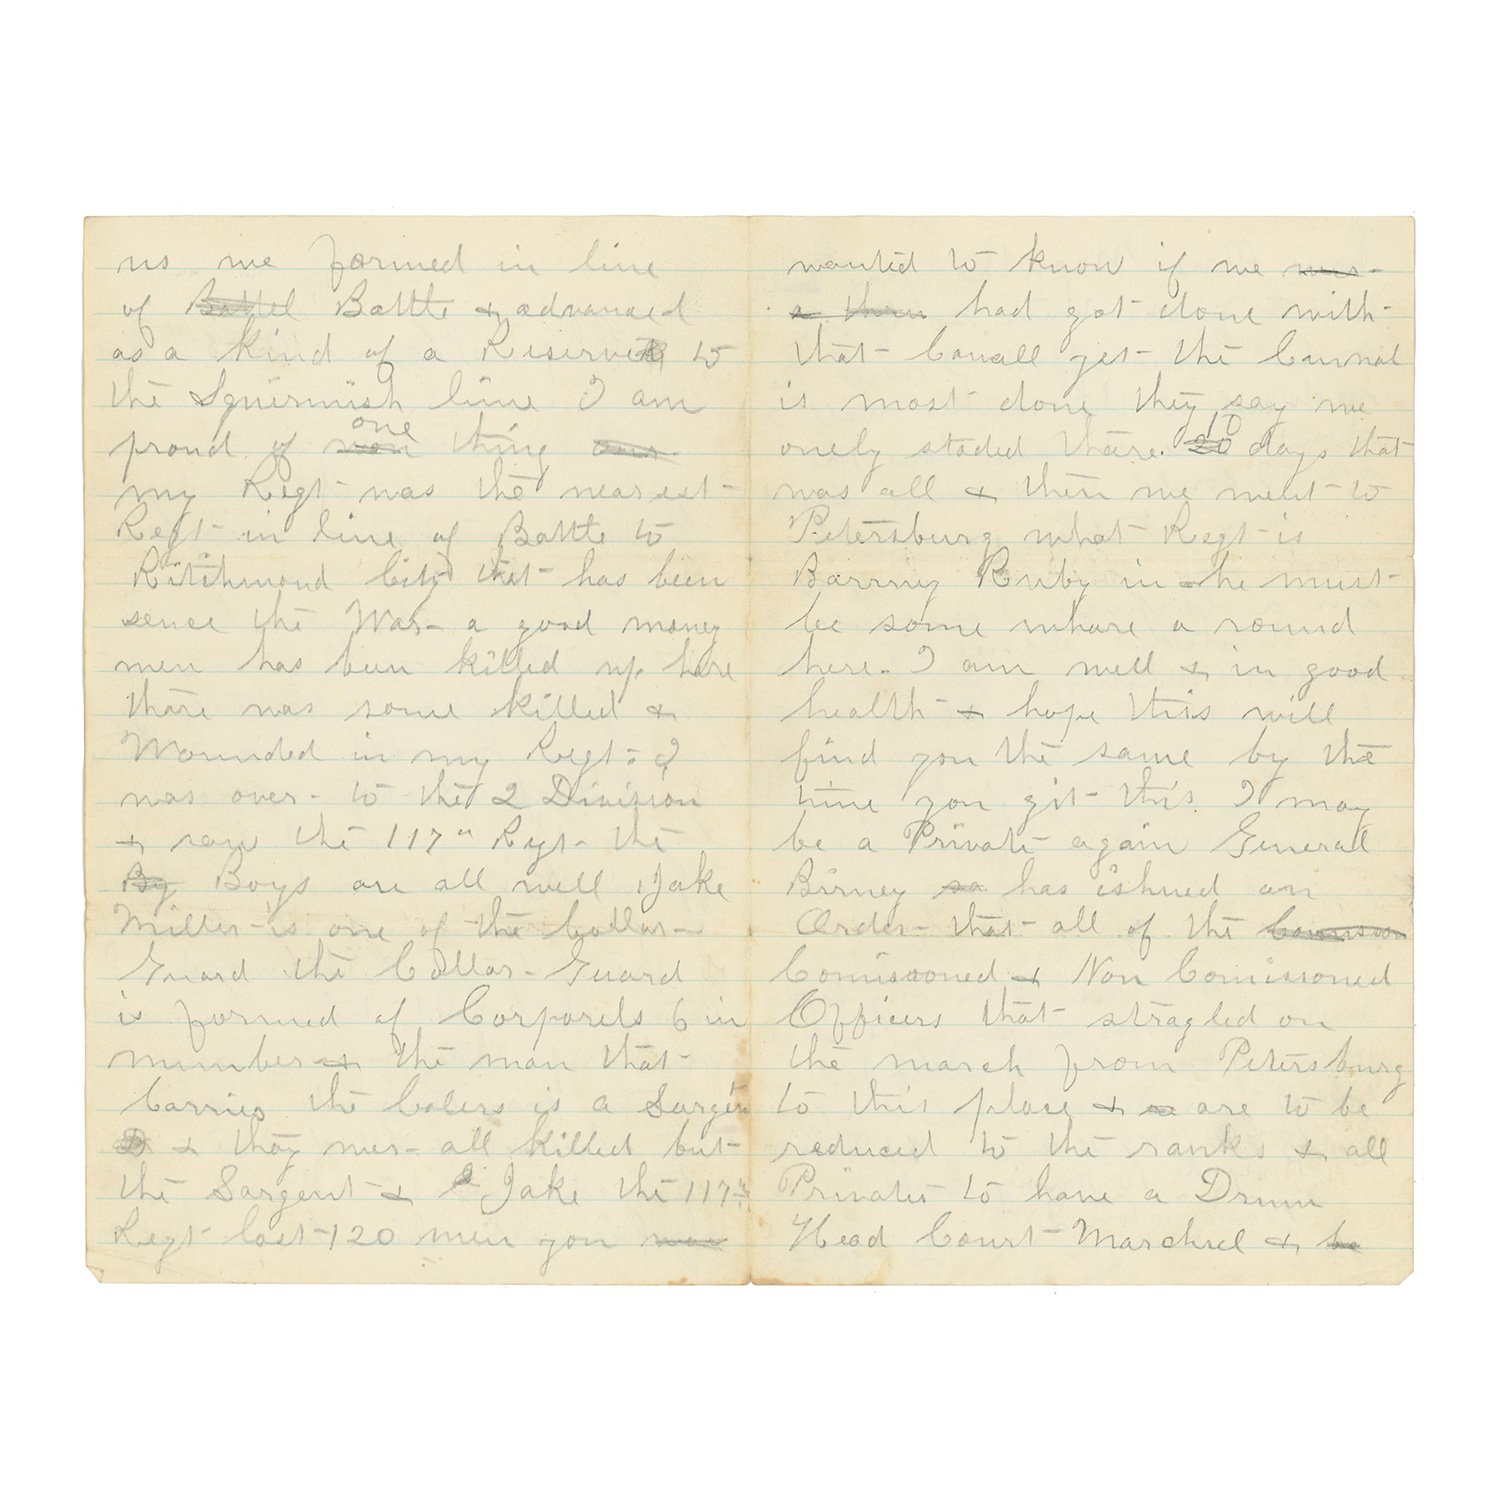 us we formed in line
of Battel Battle & advanced
as a kind of a Reserve to
the Squirmish line I am
proud of one thing
my Regt was the nearest
Regt in line of Battle to
Ritchmond City that has been
sence the War a good money
men has been killed up here
thare was some killed &
Wounded in my Regt: I
was over to the 2 Division
& saw the 117th Regt the
By Boys are all well Jake
Miller is one of the Collar
Guard the Collar Guard
is formed of Corporels 6 in
number & the man that
Carries the Colers is a Sargen
& they wer all killed but
the Sargent & Jake the 117th
Regt lost 120 men you was
wanted to know if we was
a then had got done with
that Canall yet the Cannal
is most done they say we
onely staded thare 10 days that
was all & then we went to
Petersburg what Regt is
Barrny Ruby in he must
be some whare a round
here. I am well & in good
health & hope this will
find you the same by the
time you git this I may
be a Private again General
Birney sa has ishued an
Order that all of the
Comissoned & Non Comissoned
Officers that stragled on
the march from Petersburg
to this place & are to be
reduced to the ranks & all
Privates to have a Drum
Head Court Marchel & be